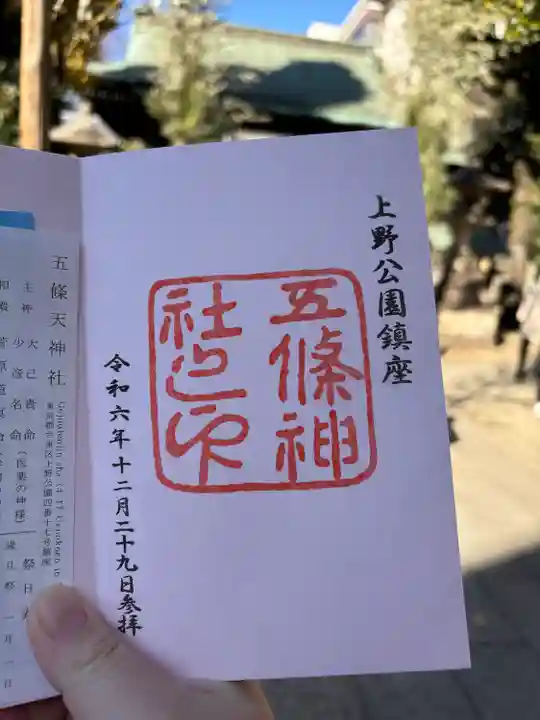 上野公園鎮座
五條神
社之印
令和六年十二月二十九日参拝
五條天神社
Gojoutenjin sha
東京都台東区上野公園四番十七号鎮座
主神 大己貴命
少彦名命
(医薬の神様)
相殿 菅原道真
祭日
歳旦祭 一月一日